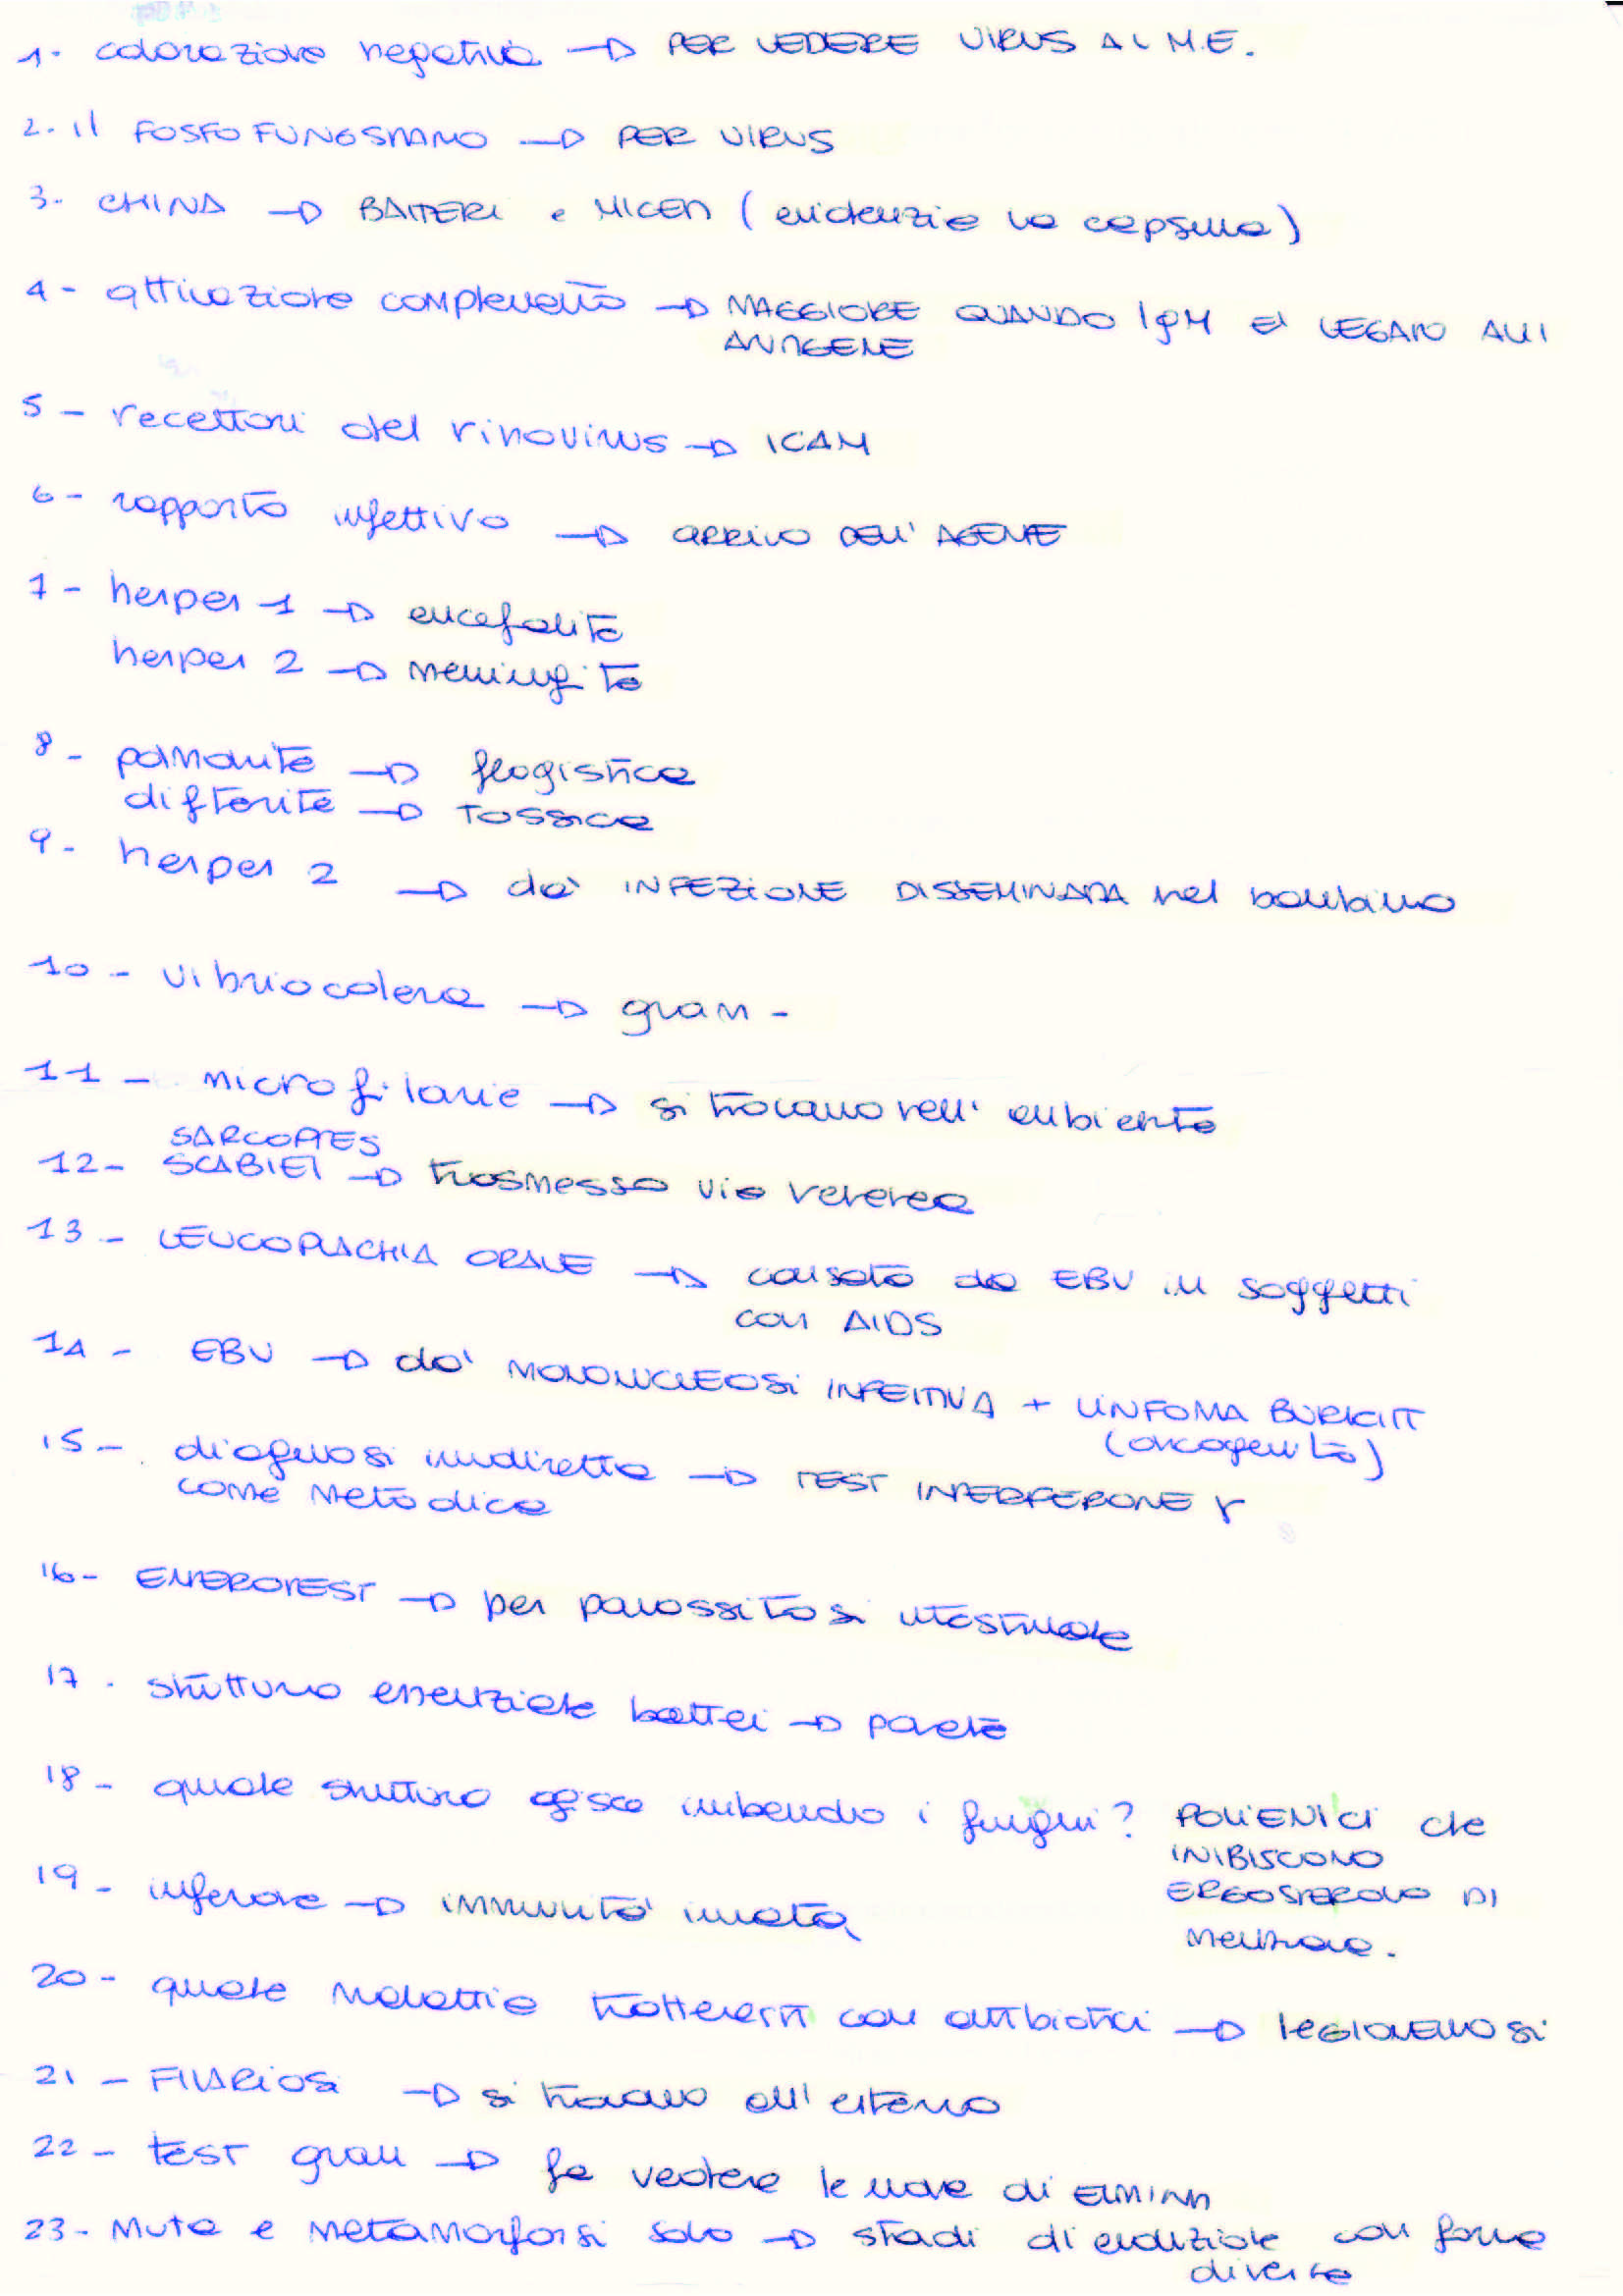 1- colorazione negativa → PER VEDERE VIRUS AL M.E.
2- il FOSFOFUNGSTANO → PER VIRUS
3- CHINA → BATTERI e MICETI (evidenzia la capsula)
4- attivazione complemento → MAGGIORE QUANDO IgM E' LEGATO ALL'
ANTIGENE
5- recettori del rinovirus → ICAM
6- rapporto infettivo → ARRIVO DELL'AGENTE
7- herpes 1 → encefalite
herpes 2 → meningite
8- polmonite → flogistica
difterite → tossica
9- herpes 2 → da' INFEZIONE DISSEMINATA nel bambino
10- vibriocolera → gram -
11- microfilarie → si trovano nell' ambiente
12- SARCOPTES
SCABIEI → trasmesso via venerea
13- LEUCOPLACHIA ORALE → causata da EBV in soggetti
con AIDS
14- EBV → da' MONONUCLEOSI INFETTIVA + LINFOMA BURKITT
(oncogenità)
15- diagnosi indiretta → TEST INTERFERONE γ
come metodica
16- ENTEROTEST → per parassitosi intestinale
17- struttura essenziale batteri → parete
18- quale struttura agisce inibendo i funghi? POLIENICI che
INIBISCONO
ERGOSTEROLO DI
membrana.
19- inferiore → immunità innata
20- quale malattia tratteresti con antibiotici → legionellosi
21- FILARIOSI → si trovano all'esterno
22- test gram → fa vedere le uova di ELMINTI
23- Muta e metamorfosi solo → stadi di evoluzione con forme
diverse